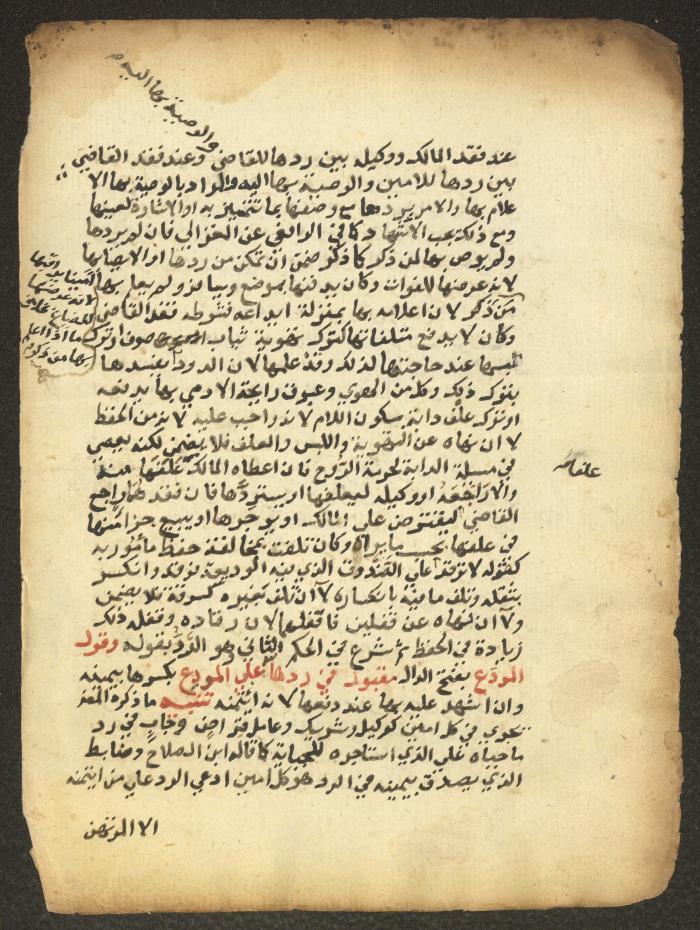 والوصية بها اليهم
عند فقد المالك ووكيله بين ردها للقاضي وعند فقد القاضي
بين ردها للامين والوصية بها اليه والمراد بالوصية بها الا
علام بها والامر بردها مع وصفها بما تتميز به او الاشارة لعينها
ومع ذلك يجب الاشهاد كما في الرافعي عن الغزالي فان لم يردها
ولم يوص بها لمن ذكر كما ذكر ضمن ان تمكن من ردها او الايصا بها
لانه عرضها للفوات وكان يدفنها بموضع ويسافر ولم يعلم بها
من ذكر لان اعلامه بها بمنزلة ايداعه فشرطه فقد القاضي
وكان لا يدفع متلفاتها كترك تهوية ثياب صوف او ترك
لبسها عند حاجتها لذلك وقد علمها لان الدود يفسدها
بترك ذلك وكل من الهوي وعبوق رايحة الادمي بها يدفعه
او ترك علف دابة بسكون اللام لانه واجب عليه لانه من الحفظ
لا ان نهاه عن التهوية واللبس والعلف فلا يضمن لكنه يعصي
في مسئلة الدابة لحرمة الروح فان اعطاه المالك علفها علفها منه
والا راجعه او وكيله ليعلفها او يستردها فان فقدهما راجع
القاضي ليقترض على المالك او يوجرها او يبيع جزا منها
في علفها بحسب ما يراه وكان تلفت بمخالفة حفظ مأمور به
كقوله لا ترقد علي الصندوق الذي فيه الوديعة فرقد وانكسر
بثقله وتلف ما فيه بانكساره لا ان تلف بغيره كسرقة فلا يضمن
ولا ان نهاه عن قفلين فاقفلهما لان رقاده وقفله ذلك
زيادة في الحفظ ثم شرع في الحكم الثاني وهو الرد بقوله وقول
المودع بفتح الدال مقبول في ردها علي المودع بكسرها بيمينه
وان اشهد عليه بها عند دفعها لانه ائتمنه تنبيه ما ذكره المصنف
يجري في كل امين كوكيل وشريك وعامل قراض وجاب في رد
ما جباه علي الذي استاجره للجباية كما قاله ابن الصلاح وضابط
الذي يصدق بيمينه في الرد هو كل امين ادعي الرد علي من ايتمنه
الا المرتهن
علفها منه